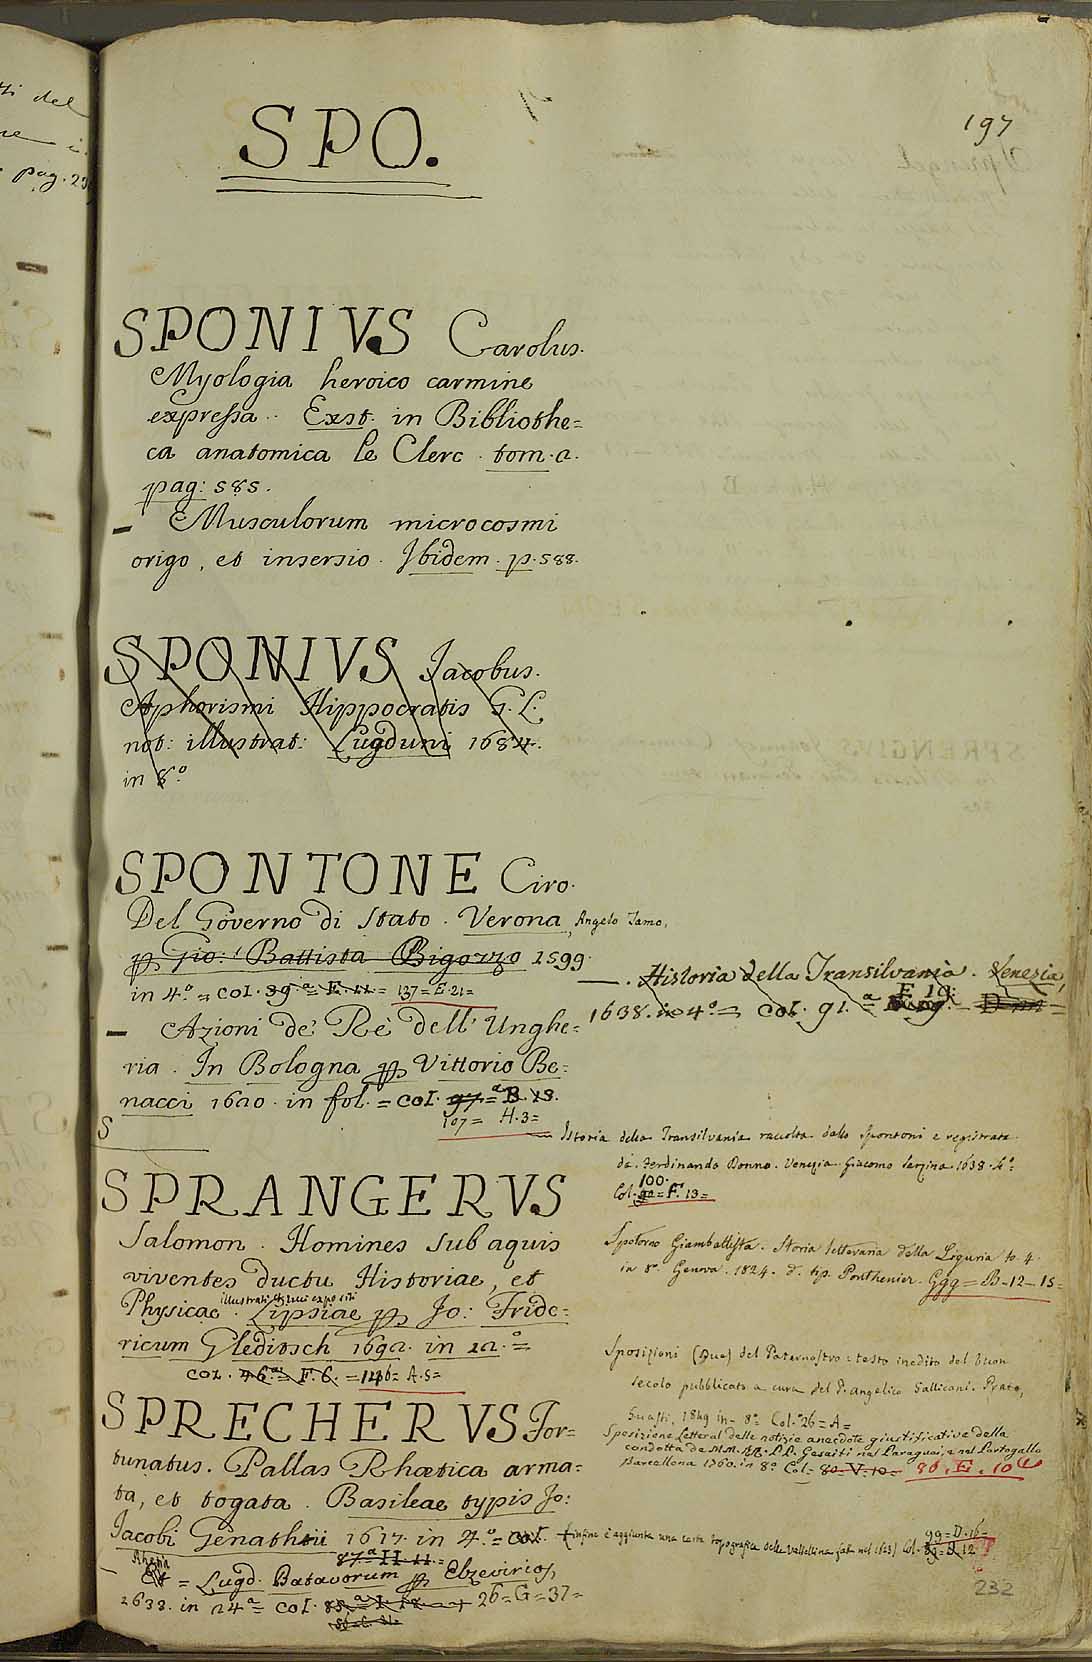 197
SPO.
SPONIVS Carolus.
Myologia heroico carmine
expressa. Exst. in Bibliothe=
ca anatomica le Clerc. tom. 2.
pag: 585.
– Musculorum microcosmi
origo, et insersio. Ibidem. p. 588.
SPONIVS Jacobus.
Aphorismi Hippocratis G. L.
not: illustrat: Lugduni 1684.
in 8.º
SPONTONE Ciro.
Del Governo di Stato. Verona, Angelo Tamo,
p Gio: Battista Bigozzo 1599.
in 4.º = col. 39.ª = E. 11 = 137 = E. 21 =
– Azioni de' Rè dell' Unghe=
ria. In Bologna p Vittorio Be=
nacci 1620. in fol. = col. 97.ª = B. 13.
107 = H. 3 =
—. Historia della Transilvania. Venezia,
1638. in 4.º = col. 91.ª = E. 19.
Istoria della Transilvania raccolta dallo Spontoni e registrata
da Ferdinando Donno. Venezia Giacomo Sarzina 1638. 4.º
100.
Col. = F. 13 =
S
SPRANGERVS
Salomon. Homines sub aquis
viventes ductu Historiae, et
Physicae illustrati
Lipsiae p Jo: Fride=
ricum Gleditsch 1692. in 12.º =
col. 46.ª = F. 6. = 146 = A. 5 =
Spotorno Giambattista. Storia letteraria della Liguria to. 4.
in 8.º Genova. 1824. d. tip. Ponthenier. Ggg = B – 12 – 15 =
Sposizioni (Due) del Paternostro: testo inedito del buon
secolo pubblicato a cura del P. Angelico Gallicani. Prato,
Guasti, 1849 in – 8.º Col. 26 = A =
Sposizione Letteral delle notizie anecdote giustificative della
condotta de MM. RR. PP. Gesuiti nel Paraguai, e nel Portogallo
Barcellona 1760. in 8.º Col. = 80. V. 10 = 86. E. 10
SPRECHERVS For=
tunatus. Pallas Rhætica arma=
ta, et togata. Basileae typis Jo:
Jacobi Genathii 1617. in 4.º = col. (infine è aggiunta una carta topografica della Valtellina fatta nel 1623) Col. 99 = D. 16 =
87.ª II. 11. =
– Rhetia = Lugd. Batavorum p Elzevirios,
1633. in 24.º = col. 26 = G = 37 =
232